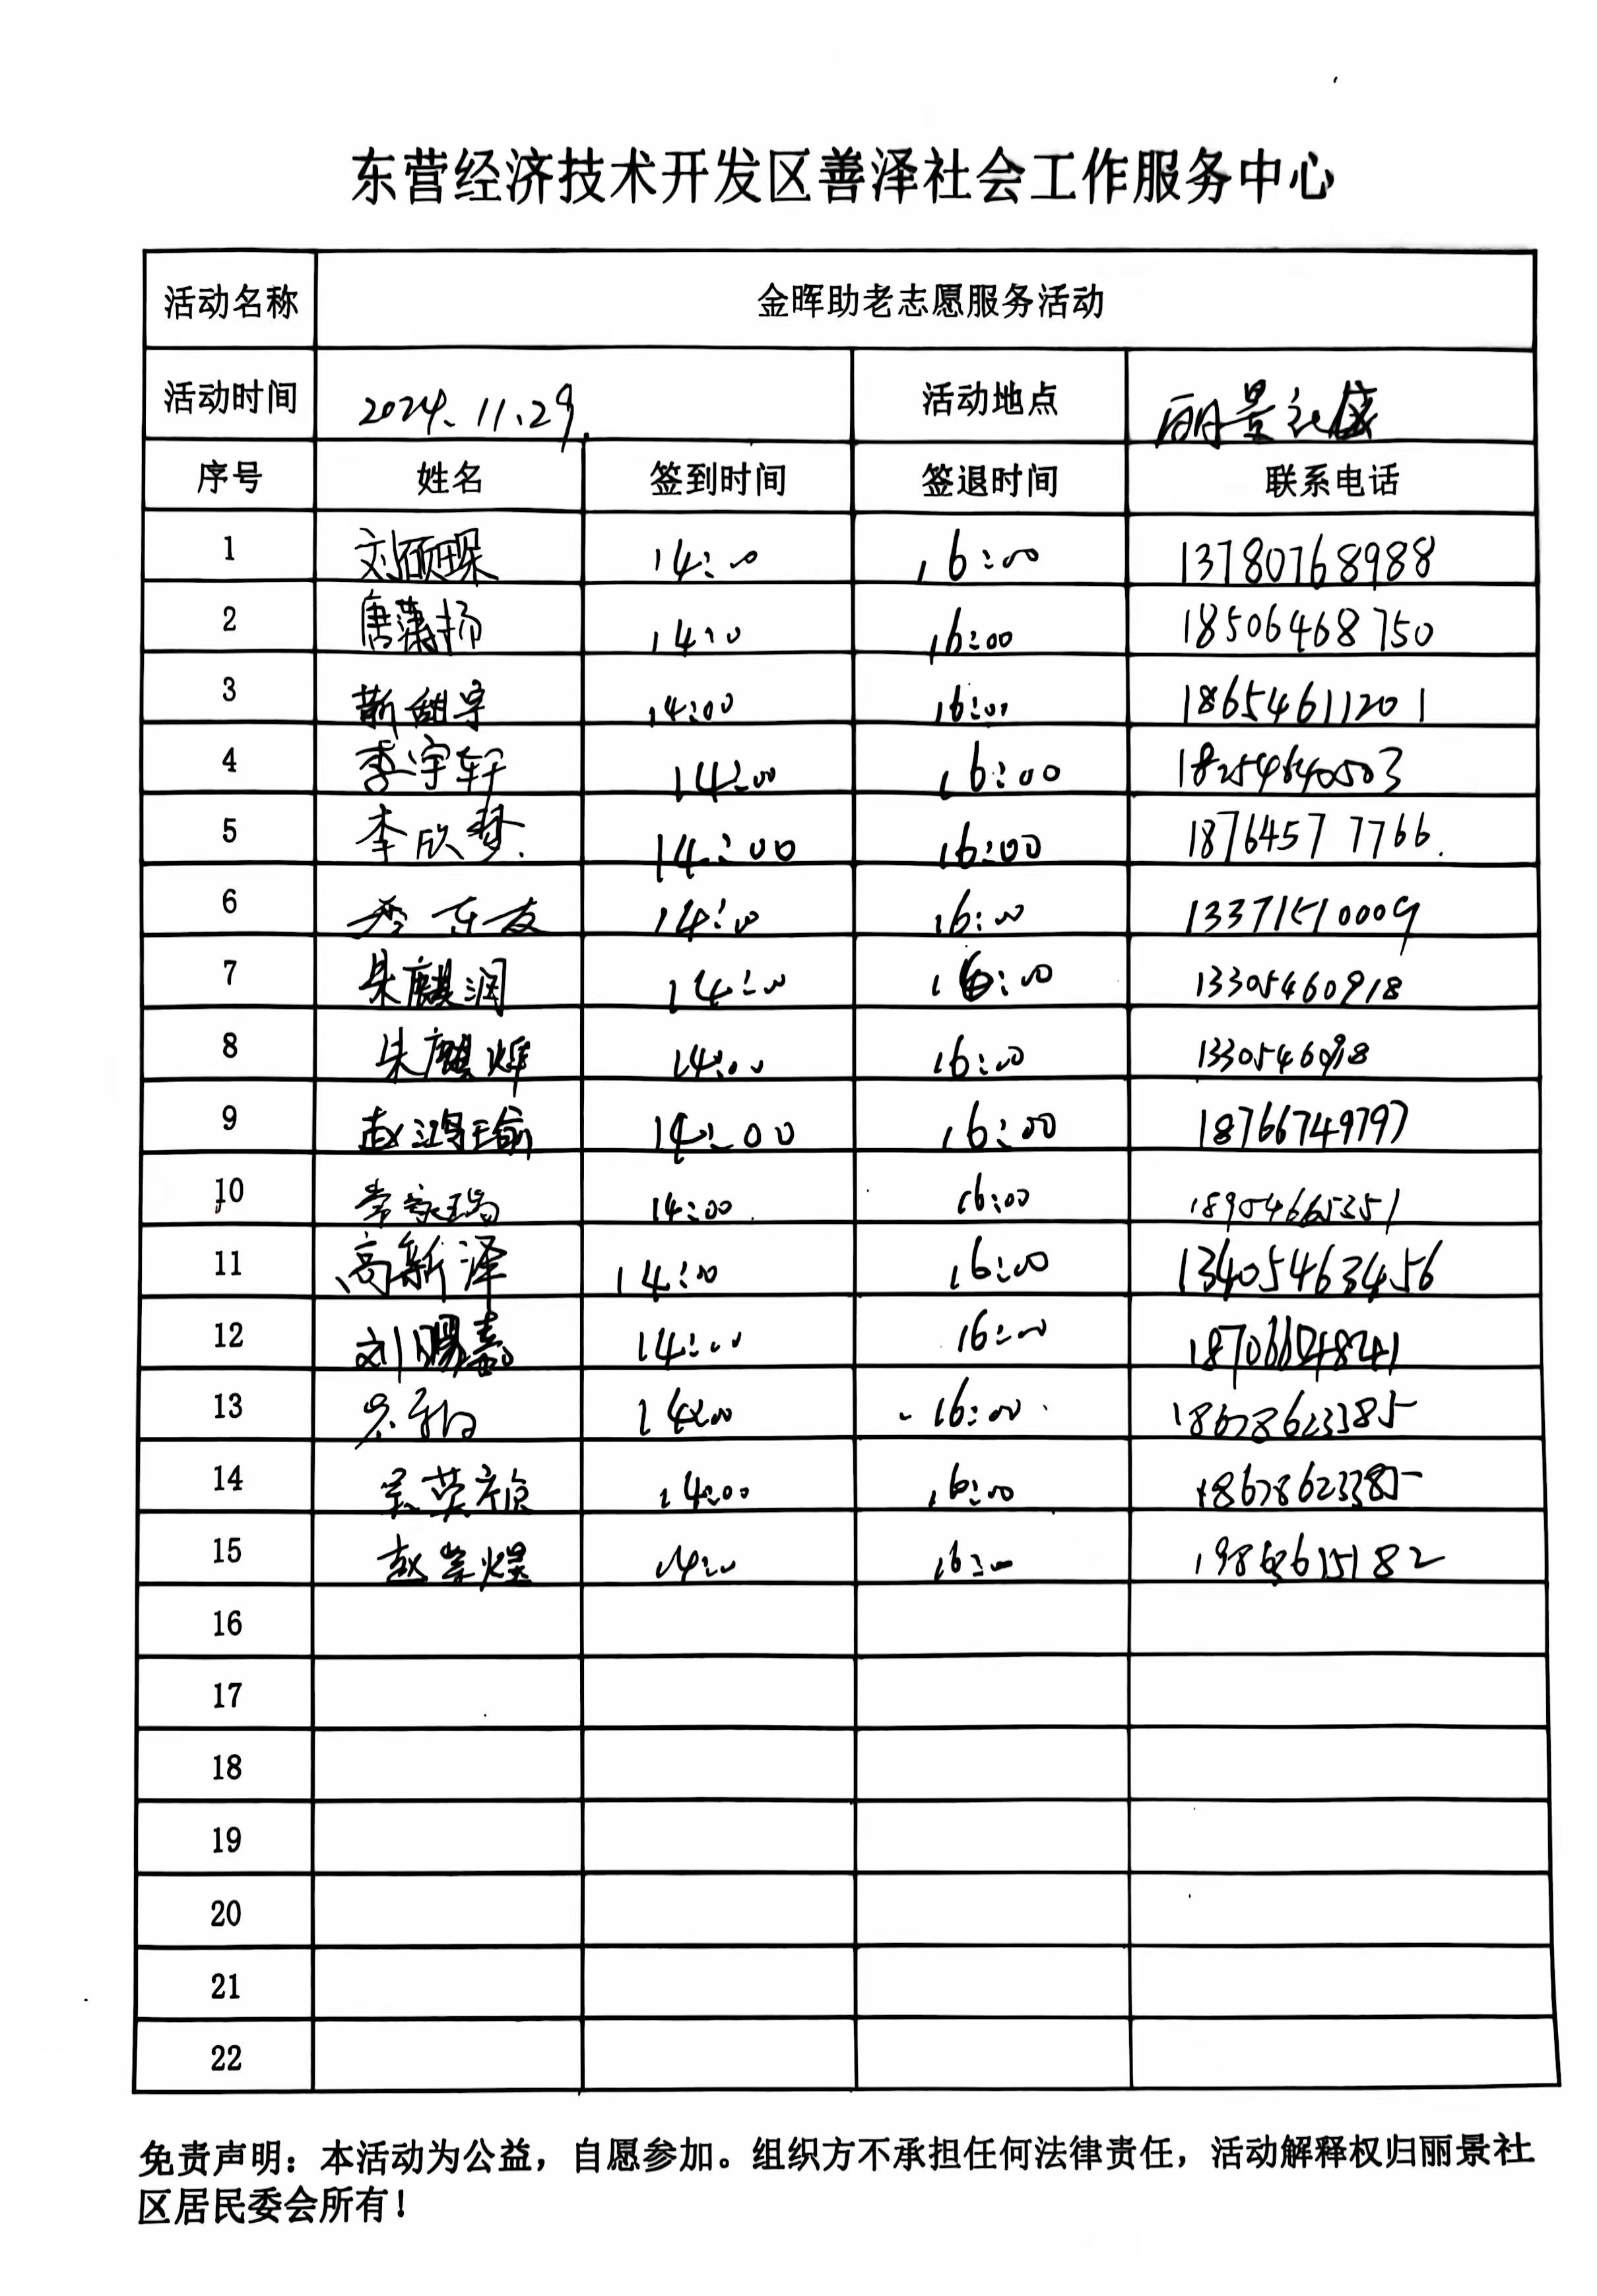 东营经济技术开发区善泽社会工作服务中心
活动名称 金晖助老志愿服务活动
活动时间 2024.11.29. 活动地点 丽景社
序号 姓名 签到时间 签退时间 联系电话
1 刘硕琛 14:00 16:00 13780768988
2 唐潇扬 14:00 16:00 18506468750
3 14:00 16:00 18654611201
4 李宇轩 14:00 16:00 18254640503
5 李欣梦 14:00 16:00 18764577766.
6 李东友 14:00 16:00 13371510009
7 朱麒润 14:00 16:00 13305460918
8 朱麒烨 14:00 16:00 1330546098
9 赵鸿瑜 14:00 16:00 18766749797
10 常家瑞 14:00 16:00 18954665351
11 高新泽 14:00 16:00 13405463456
12 刘赐嘉 14:00 16:00
13 14:00 16:00 18678623385
14 吴英桢 14:00 16:00 18678623385
15 赵崇煜 14:00 16:00
16
17
18
19
20
21
22
免责声明：本活动为公益，自愿参加。组织方不承担任何法律责任，活动解释权归丽景社
区居民委会所有！